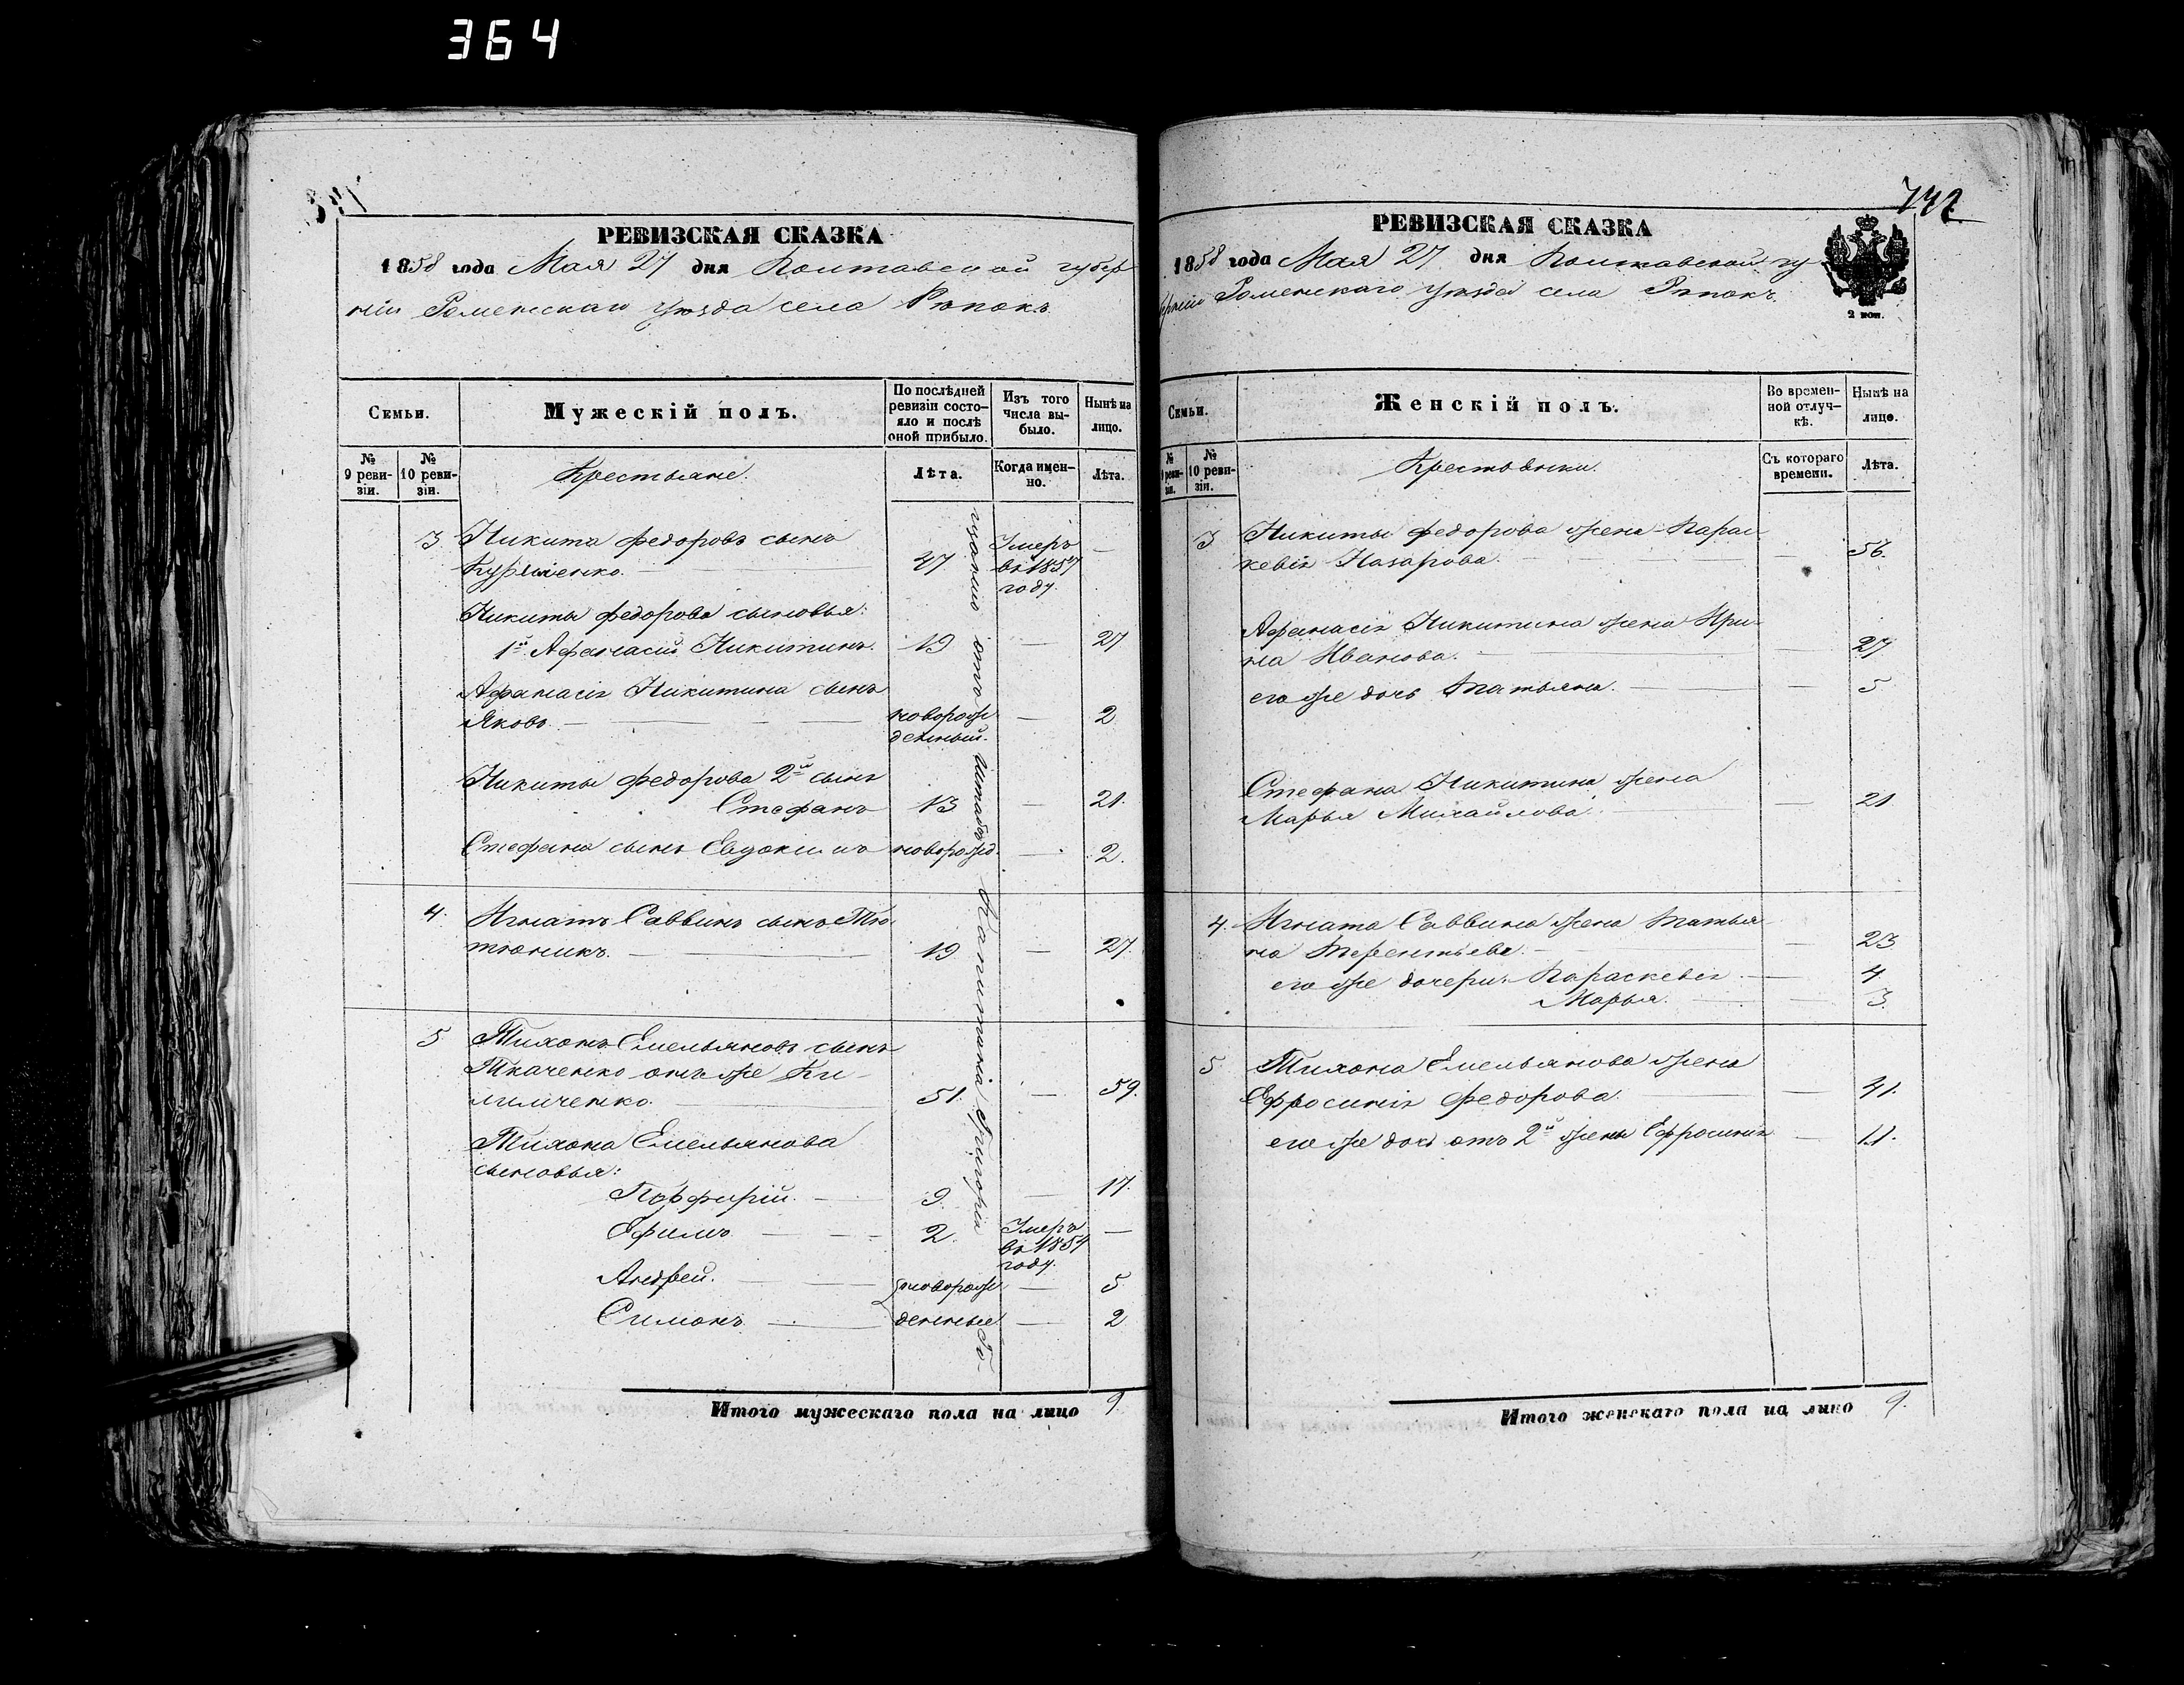 364
РЕВИЗСКАЯ СКАЗКА
1858 года Мая 27 дня Полтавской губер
ніи Роменскаго уѣзда села Рѣпокъ
Семьи.
Мужескій полъ.
По послѣдней ревизіи состояло и послѣ оной прибыло.
Изъ того числа выбыло.
Нынѣ на лицо.
№ 9 ревизіи.
№ 10 ревизіи.
Крестьяне.
Лѣта.
Когда именно.
Лѣта.
3 Никита Федоровъ сынъ
47 Умеръ въ 1857 году. —
Никиты Федорова сыновья:
1й Афанасій Никитинъ. 19 — 27
Афанасія Никитина сынъ
Яковъ — новорожденный. — 2
Никиты Федорова 2й сынъ
Стефанъ 13 — 21.
Стефана сынъ Евдокимъ новорожд. — 2.
4. Игнатъ Саввинъ сынъ Тю-
тюникъ. — 19 — 27.
5 Тихонъ Емельяновъ сынъ
Ткаченко онъ же Ки-
лимченко. 51. — 59.
Тихона Емельянова
сыновья:
Порфирій. — 9. — 17.
Ефимъ — 2. Умеръ въ 1854 году. —
Андрей. — новорож — 5
Симонъ — денные — 2
Итого мужескаго пола на лицо 9
РЕВИЗСКАЯ СКАЗКА
1858 года Мая 27 дня Полтавской гу
берніи Роменскаго уѣзда села Рѣпокъ
2 коп.
Семьи.
Женскій полъ.
Во временной отлучкѣ.
Нынѣ на лицо.
№ 9 ревизіи.
№ 10 ревизіи.
Крестьянки.
Съ котораго времени.
Лѣта.
3 Никиты Федорова жена Парас-
кевія Назарова. — 56.
Афанасія Никитина жена Ири-
на Иванова. — 27
его же дочь Татьяна. — 5
Стефана Никитина жена
Марья Михайлова. — 21
4. Игната Саввина жена Татья
на Терентьева. — 23
его же дочери: Параскевія — 4
Марья. — 3.
5 Тихона Емельянова жена
Ефросинія Федорова. — 41.
его же дочь отъ 2й жены Ефросинія — 11.
Итого женскаго пола на лицо 9.